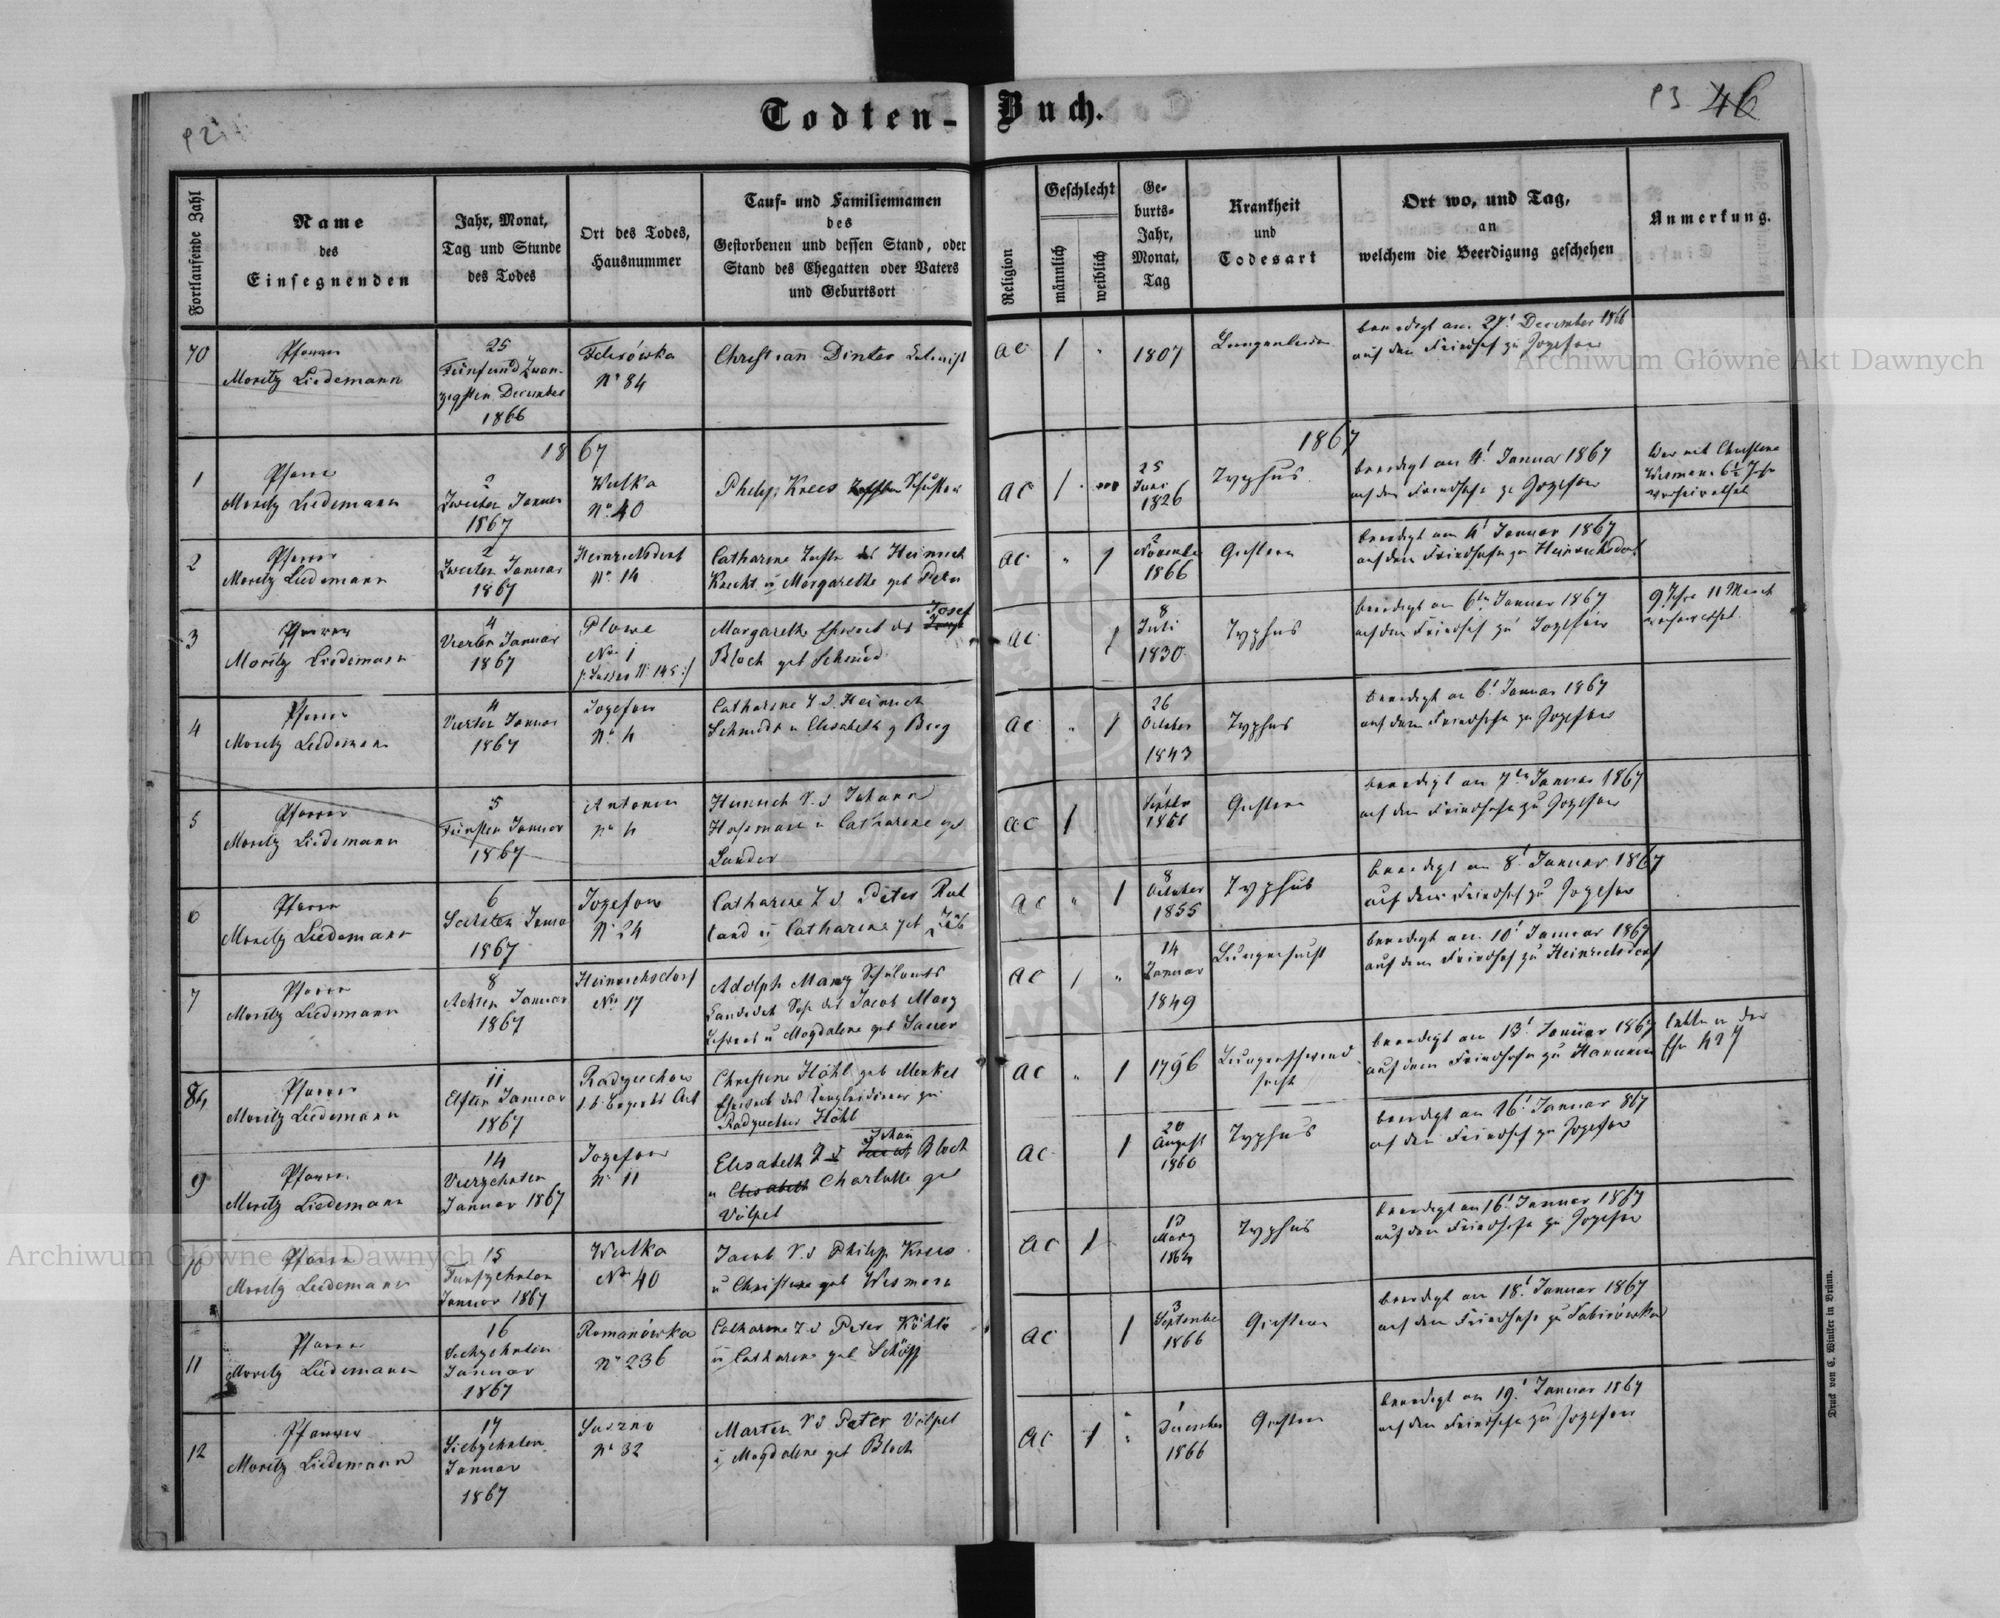 P 2
P 3 46
Todten-Buch.
Fortlaufende Zahl
Name
des
Einsegnenden
Jahr, Monat,
Tag und Stunde
des Todes
Ort des Todes,
Hausnummer
Tauf- und Familiennamen
des
Gestorbenen und dessen Stand, oder
Stand des Ehegatten oder Vaters
und Geburtsort
Religion
Geschlecht
männlich
weiblich
Ge-
burts-
Jahr,
Monat,
Tag
Krankheit
und
Todesart
Ort wo, und Tag,
an
welchem die Beerdigung geschehen
Anmerkung.
70
Pfarrer
Moritz Liedemann
25
Fünfundzwan-
zigsten December
1866
No 84
Christian Dinter Colonist
ac
1
1807
beerdigt am 27t December 1866
auf dem Friedhof zu Jozefow
1867
1867
1
Pfarrer
Moritz Liedemann
2
Zweiten Januar
1867
Wulka
No 40
Philipp Krees Schuster
ac
1
25
Juni
1826
Typhus
beerdigt am 4t Januar 1867
auf dem Friedhofe zu Jozefow
War mit Christine
Wismer 6½ Jahr
verheirathet
2
Pfarrer
Moritz Liedemann
2
Zweiten Januar
1867
Heinrichsdorf
No 14
Catharine Tochter des Heinrich
Knecht u Margarethe geb
ac
1
2
November
1866
beerdigt am 4t Januar 1867
auf dem Friedhofe zu Heinrichsdorf
3
Pfarrer
Moritz Liedemann
4
Vierten Januar
1867
Plowe
No 1
Margarethe Eheweib des Josef
Bloch geb Schmied
ac
1
8
Juli
1830
Typhus
beerdigt am 6ten Januar 1867
auf dem Friedhof zu Jozefow
9 Jahre 11 Monat
verheirathet
4
Pfarrer
Moritz Liedemann
4
Vierten Januar
1867
Jozefow
No 4
Catharine T. d. Heinrich
Schmidt u Elisabeth g Berg
ac
1
26
October
1843
Typhus
beerdigt am 6t Januar 1867
auf dem Friedhofe zu Jozefow
5
Pfarrer
Moritz Liedemann
5
Fünften Januar
1867
No 4
Heinrich S. d Johann
u Catharine geb
Sander
ac
1
beerdigt am 7ten Januar 1867
auf dem Friedhofe zu Jozefow
6
Pfarrer
Moritz Liedemann
6
Sechsten Januar
1867
Jozefow
No 24
Catharine T d Peter Ruh
land u Catharine geb
ac
1
8
October
1855
Typhus
beerdigt am 8t Januar 1867
auf dem Friedhof zu Jozefow
7
Pfarrer
Moritz Liedemann
8
Achten Januar
1867
Heinrichsdorf
No 17
Adolph Manz Schulamts
Candidat Sohn des Jacob Manz
Lehrers u Magdalene geb Sauer
ac
1
14
Januar
1849
Lungensucht
beerdigt am 10t Januar 1867
auf dem Friedhof zu Heinrichsdorf
8
Pfarrer
Moritz Liedemann
11
Elften Januar
1867
Radziechow
Christine Höhl geb Merkel
Eheweib des Kanzleidiener zu
Radziechow Höhl
ac
1
1796
Lungenschwind
sucht
beerdigt am 13t Januar 1867
auf dem Friedhofe zu Hanunin
lebte in der
Ehe
9
Pfarrer
Moritz Liedemann
14
Vierzehnten
Januar 1867
Jozefow
No 11
Elisabeth T d Johan Bloch
u Elisabeth Charlotte geb
Völpel
ac
1
20
August
1860
Typhus
beerdigt am 16t Januar 867
auf dem Friedhof zu Jozefow
10
Pfarrer
Moritz Liedemann
15
Fünfzehnten
Januar 1867
Wulka
No 40
Jacob S. d Philipp Krees
u Christine geb Wismer
ac
1
13
März
1864
Typhus
beerdigt am 16t Januar 1867
auf dem Friedhofe zu Jozefow
11
Pfarrer
Moritz Liedemann
16
Sechzehnten
Januar
1867
Romanówka
No 236
Catharine T d Peter Köhle
u Catharine geb Schöpp
ac
1
3
September
1866
beerdigt am 18t Januar 1867
auf dem Friedhofe zu Sabinówka
12
Pfarrer
Moritz Liedemann
17
Siebzehnten
Januar
1867
No 32
Martin S d Peter Völpel
u Magdalene geb Bloch
ac
1
1
December
1866
beerdigt am 19t Januar 1867
auf dem Friedhofe zu Jozefow
Druck von C. Winiker in Brünn.
Archiwum Główne Akt Dawnych
Archiwum Główne Akt Dawnych